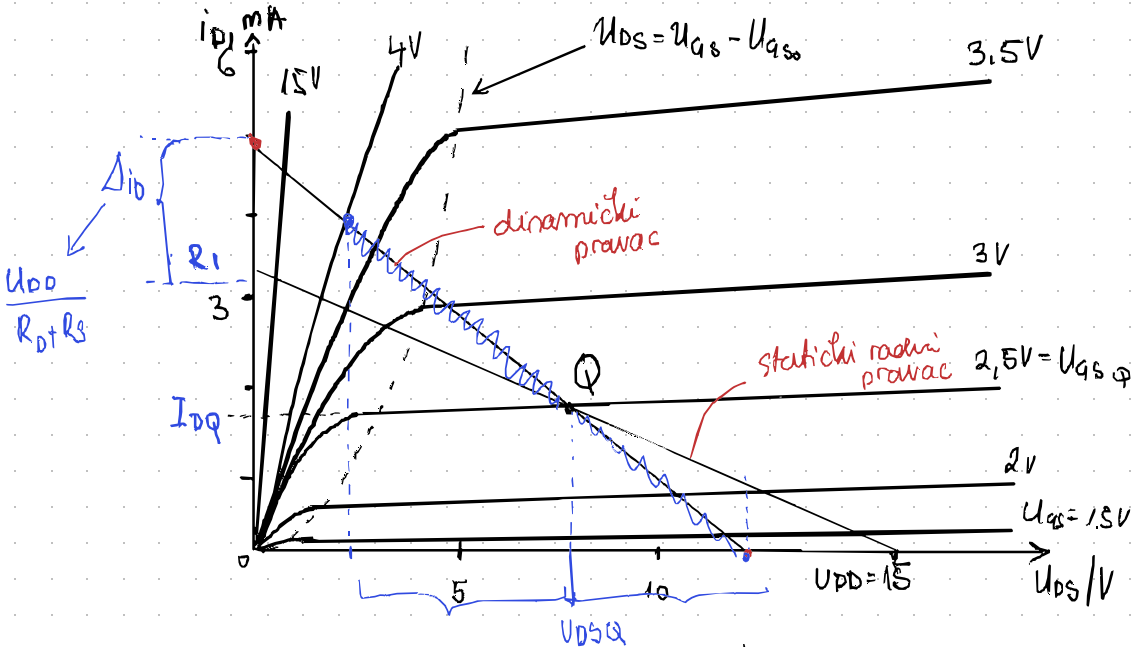 iD, mA
6
15V
4V
UDS = UGS - UGS0
3,5V
ΔiD
R1
dinamički
pravac
3V
UDD
RD+RS
3
statički radni
pravac
2,5V = UGSQ
Q
IDQ
2V
UGS = 1.5V
0
5
10
UDD = 15
UDS/V
UDSQ